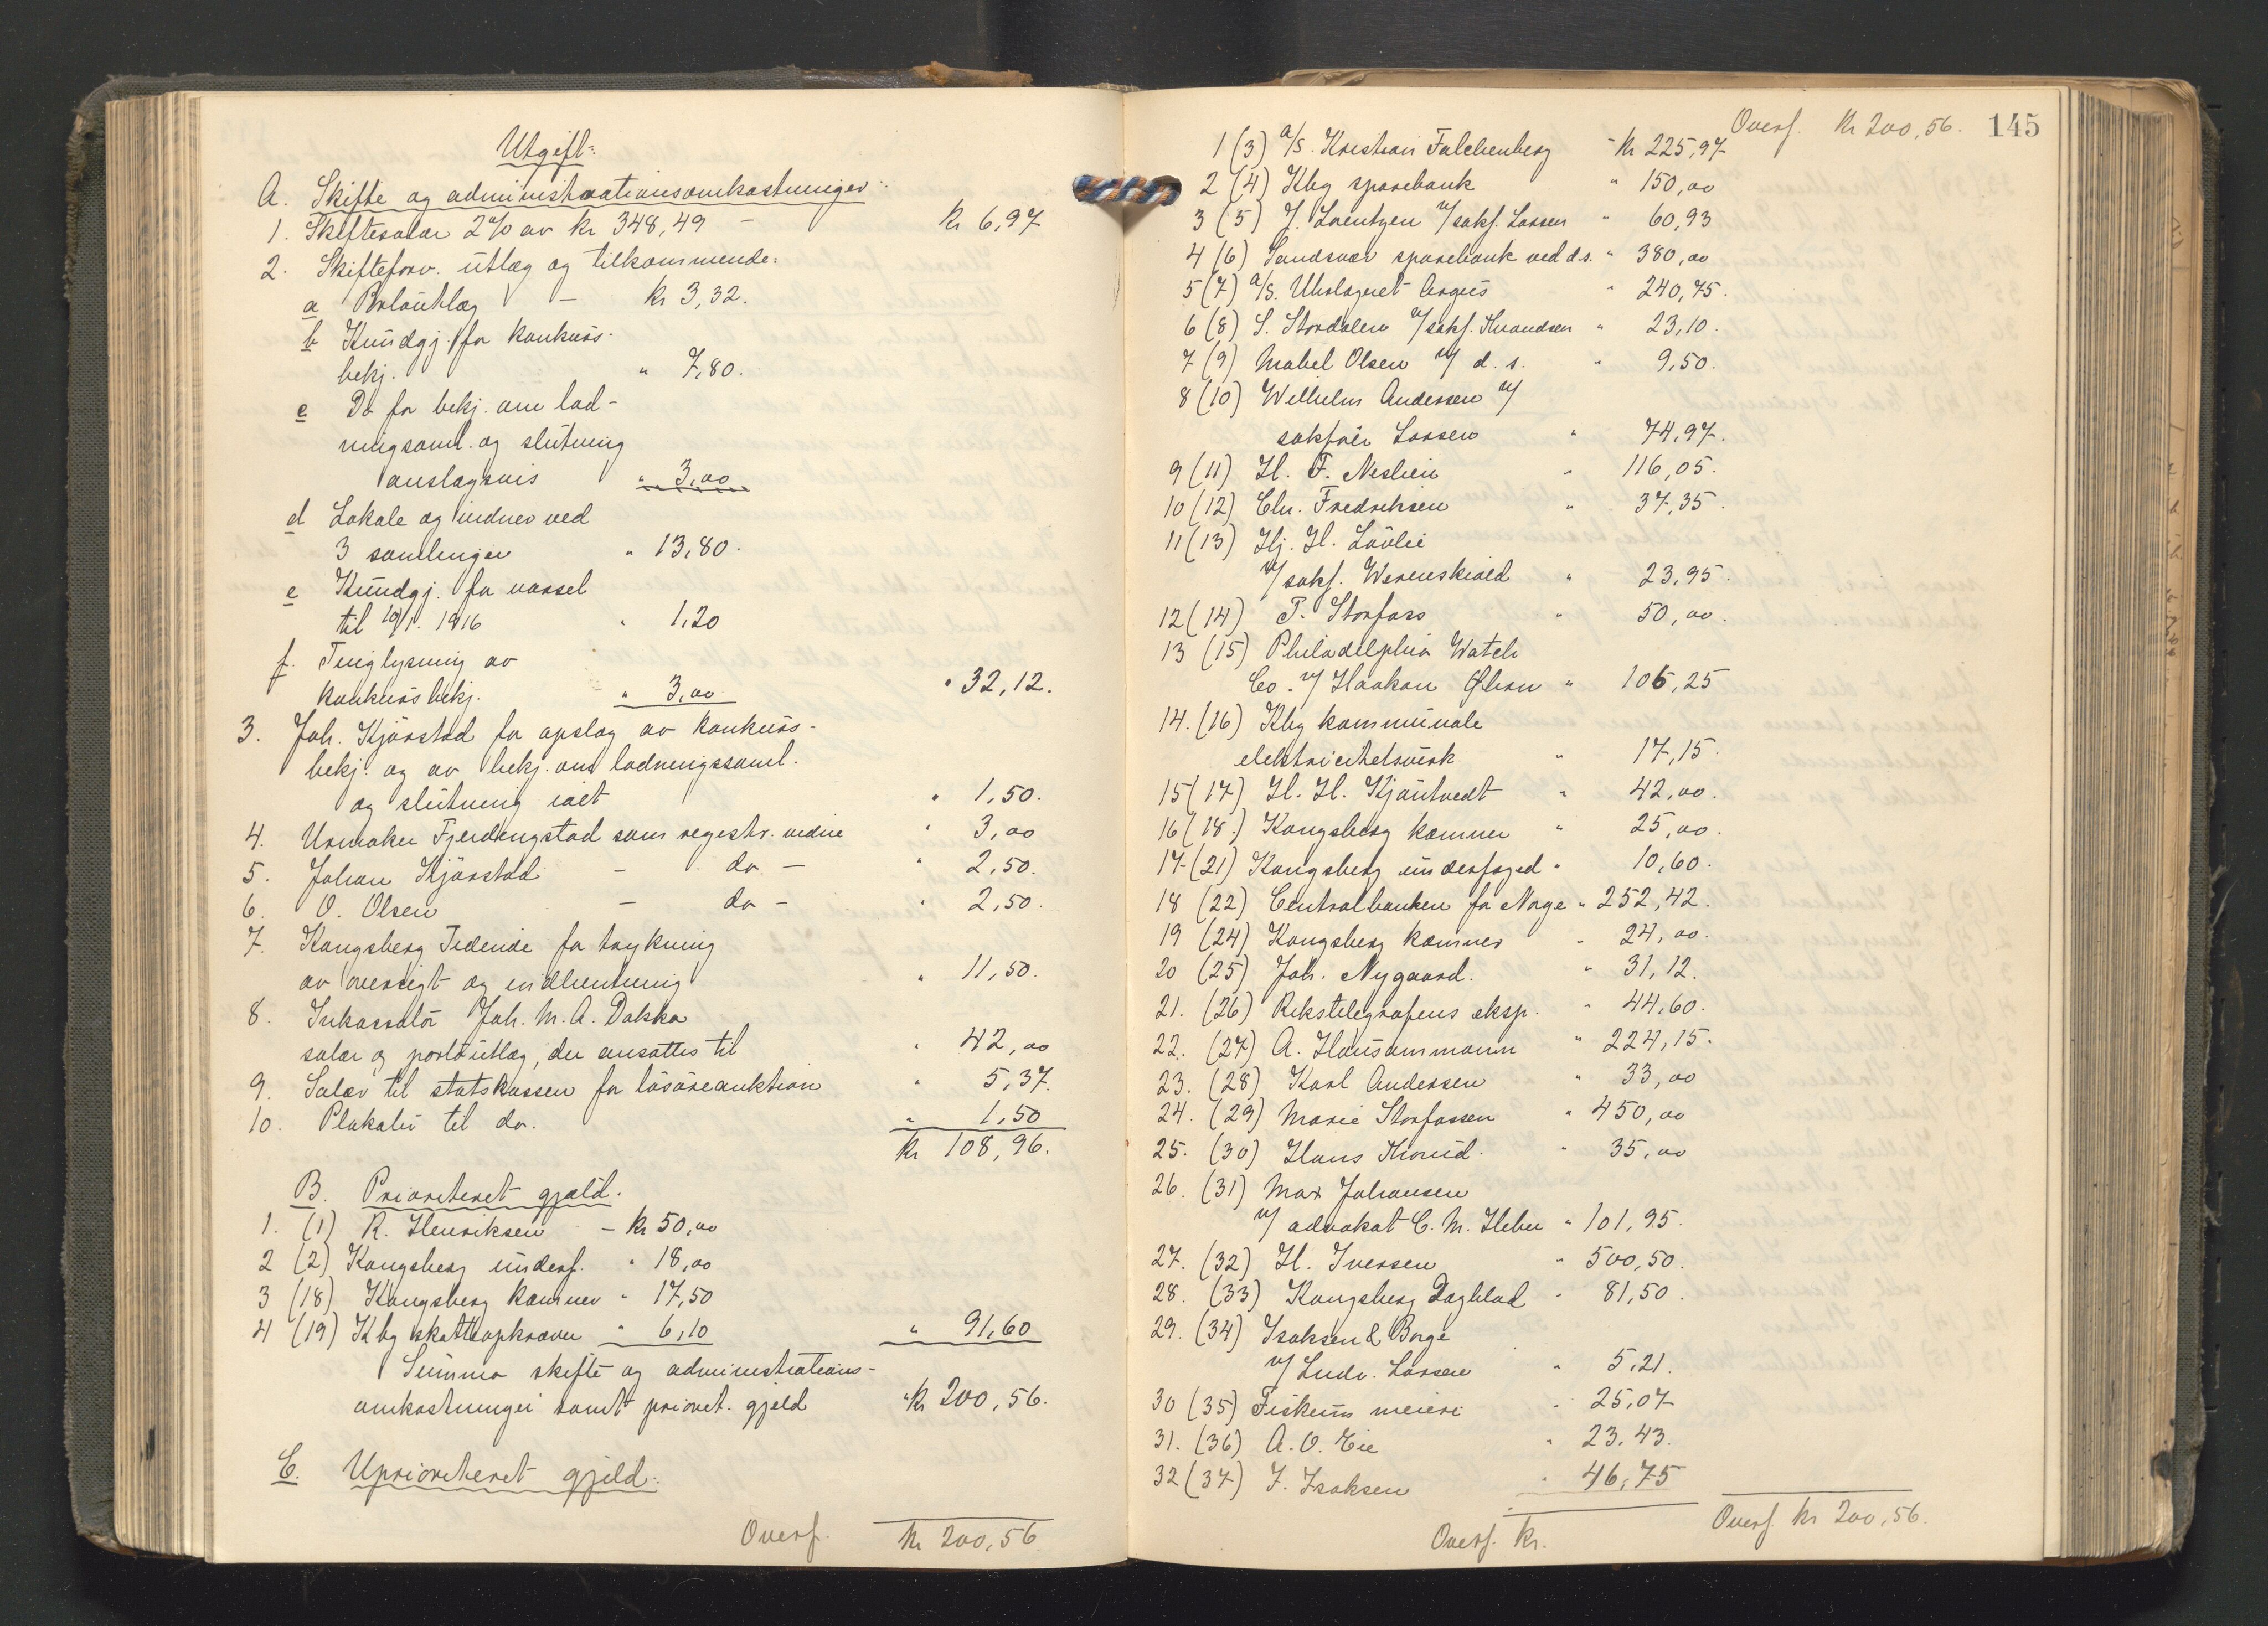 Utgift:
A. Skifte og administrationsomkostninger:
1. Skiftesalær 2% av kr 348,49 – kr 6,97
2. Skifteforv. utlæg og tilkommende:
a Portoutlæg – kr 3,32.
b Kundgj. for konkurs-
bekj. " 7,80.
c Do for bekj. om lod-
ningsaml. og slutning
anslagsvis " 3,00
d Lokale og vidner ved
3 samlinger " 13,80.
e Kundgj. for varsel
til 10/1. 1916 " 1,20
f. Tinglysning av
konkursbekj. " 3,00 " 32,12.
3. Joh. Kjørstad for opslag av konkurs-
bekj. og av bekj. om lodningssaml.
og slutning ialt " 1,50.
4. Urmaker Fjerdingstad som registr. vidne " 3,00
5. Johan Kjørstad – do – " 2,50.
6. O. Olsen – do – " 2,50.
7. Kongsberg Tidende for trykning
av oversigt og indhentning " 11,50.
8. Inkassatør Joh. M. A. Dokka
salær og portoutlæg, der ansættes til " 42,00
9. Salær til statskassen for løsøreauktion " 5,37.
10. Plakater til do. " 1,50
Kr 108,96.
B. Prioritert gjæld.
1. (1) R. Henriksen – Kr 50,00
2 (2) Kongsberg underf. " 18,00
3 (18) Kongsberg kæmner " 17,50
4 (19) Kbg skatteopkræver " 6,10 " 91,60
Summa skifte og administrations-
omkostninger samt priorit. gjeld "Kr 200,56.
C. Uprioriteret gjeld:
Overf. Kr 200,56
Overf. Kr 200,56. 145
1 (3) A/S. Kristian Falchenberg – Kr 225,97
2 (4) Kbg sparebank " 150,00
3 (5) J. Lorentzen v/ sakf. Lassen " 60,93
4 (6) Sandsvær sparebank ved d.s. " 380,00
5 (7) A/S. Uhrlageret Argus " 240,75.
6 (8) S. Stordalen v/ sakf. Knudsen " 23,10.
7 (9) Mabel Olsen v/ d. s. " 9,50.
8 (10) Wilhelm Andersen v/
sakfør Lassen " 74,97.
9 (11) H. F. Neslein " 116,05.
10 (12) Chr. Fredriksen " 37,35.
11 (13) Hj. H. Løvlie
v/ sakf. Werenskiold " 23,95.
12 (14) P. Storfoss " 50,00.
13 (15) Philadelphia Watch
Co. v/ Haakon Øhrn " 106,25
14. (16) Kbg kommunale
elektricitetsverk " 17,15.
15 (17) H. H. Kjøntvedt " 42,00.
16 (18.) Kongsberg kæmner " 25,00.
17 (21) Kongsberg underfoged " 10,60.
18 (22) Centralbanken for Norge " 252,42.
19 (24) Kongsberg kæmner " 24,00.
20 (25) Joh. Nygaard. " 31,12.
21. (26) Rikstelegrafens eksp. " 44,60.
22. (27) A. Hansommann " 224,15.
23. (28) Karl Andersen " 33,00
24. (29) Marie Storfossen " 450,00
25. (30) Hans Kronid. " 35,00
26. (31) Max Johansen
v/ advokat C. M. Heber " 101,95.
27. (32) H. Iversen " 500,50.
28. (33) Kongsberg Dagblad " 81,50.
29. (34) Isaksen & Borge
v/ Ludv. Lassen " 5,21.
30 (35) Fiskum meieri " 25,07
31. (36) A. O. Eie " 23.43.
32 (37) J. Isaksen " 46,75
Overf. Kr. Overf. Kr 200,56.